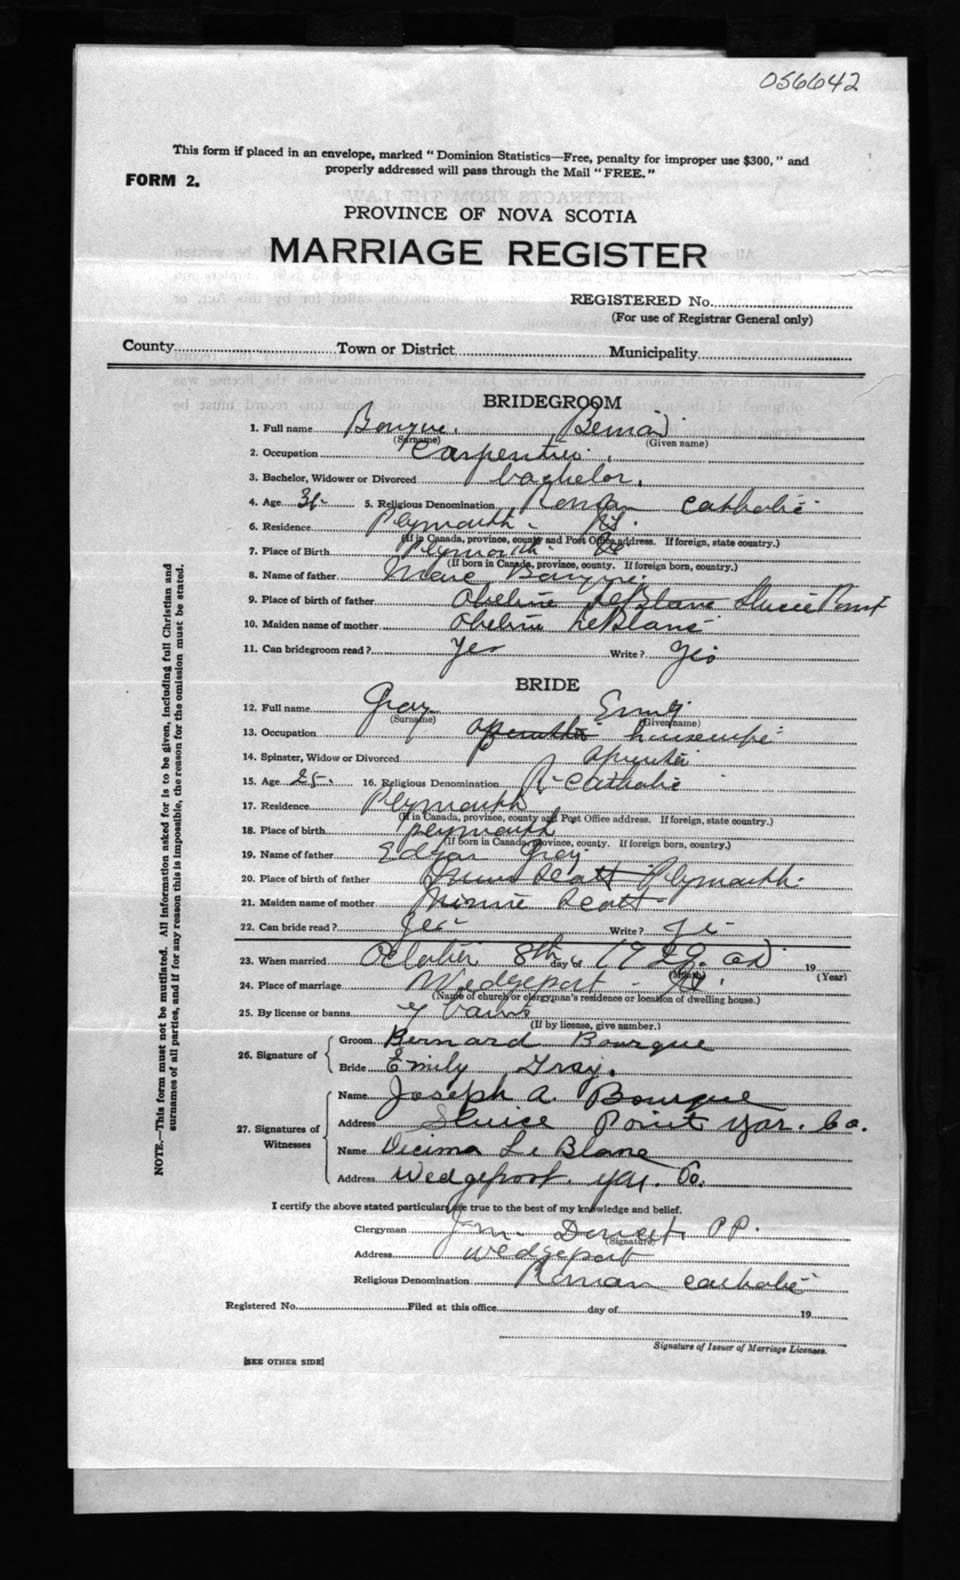 056642
This form if placed in an envelope, marked "Dominion Statistics—Free, penalty for improper use $300," and
properly addressed will pass through the Mail "FREE."
FORM 2.
PROVINCE OF NOVA SCOTIA
MARRIAGE REGISTER
REGISTERED No.
(For use of Registrar General only)
County Town or District Municipality
BRIDEGROOM
1. Full name Bourque. Bernard
(Surname) (Given name)
2. Occupation Carpenter.
3. Bachelor, Widower or Divorced bachelor.
4. Age 31- 5. Religious Denomination Roman Catholic
6. Residence Plymouth -
(If in Canada, province, county and Post Office address. If foreign, state country.)
7. Place of Birth Plymouth.
(If born in Canada, province, county. If foreign born, country.)
8. Name of father Marc Bourque.
9. Place of birth of father Obeline LeBlanc Sluice Point
10. Maiden name of mother Obeline LeBlanc
11. Can bridegroom read? Yes Write? Yes
BRIDE
12. Full name Gray Emily
(Surname) (Given name)
13. Occupation housewife
14. Spinster, Widow or Divorced Spinster
15. Age 25. 16. Religious Denomination R- Catholic
17. Residence Plymouth
(If in Canada, province, county and Post Office address. If foreign, state country.)
18. Place of birth Plymouth
(If born in Canada, province, county. If foreign born, country.)
19. Name of father Edgar Gray
20. Place of birth of father Scott Plymouth.
21. Maiden name of mother Minnie Scott
22. Can bride read? Yes Write? Yes
23. When married October 8th day of 1929. AD 19
(Month) (Year)
24. Place of marriage Wedgeport -
(Name of church or clergyman's residence or location of dwelling house.)
25. By license or banns banns
(If by license, give number.)
26. Signature of
Groom Bernard Bourque
Bride Emily Gray.
27. Signatures of Witnesses
Name Joseph A. Bourque
Address Sluice Point Yar. Co.
Name Decima Le Blanc
Address Wedgeport. Yar. Co.
I certify the above stated particulars are true to the best of my knowledge and belief.
Clergyman P.P.
(Signature)
Address Wedgeport
Religious Denomination Roman Catholic
Registered No. Filed at this office day of 19
Signature of Issuer of Marriage Licenses.
[SEE OTHER SIDE]
NOTE.—This form must not be mutilated. All information asked for is to be given, including full Christian and
surnames of all parties, and if for any reason this is impossible, the reason for the omission must be stated.